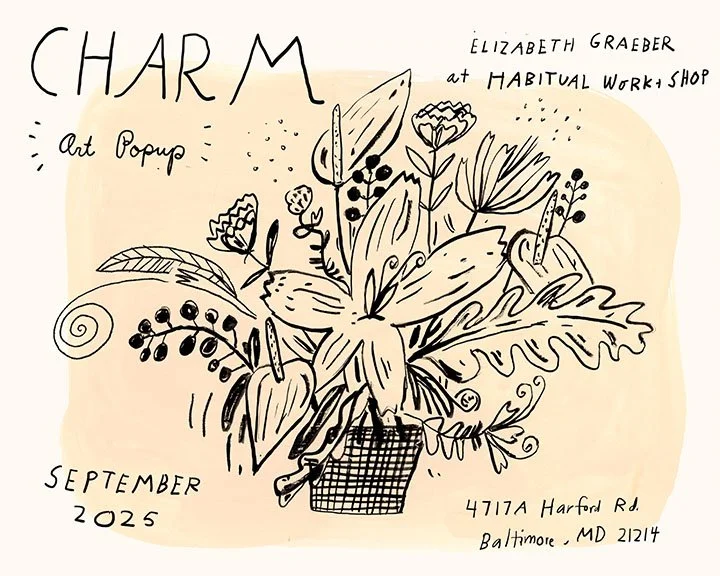 CHARM
Art Popup
ELIZABETH GRAEBER
at HABITUAL WORK + SHOP
SEPTEMBER
2025
4717A Harford Rd.
Baltimore, MD 21214